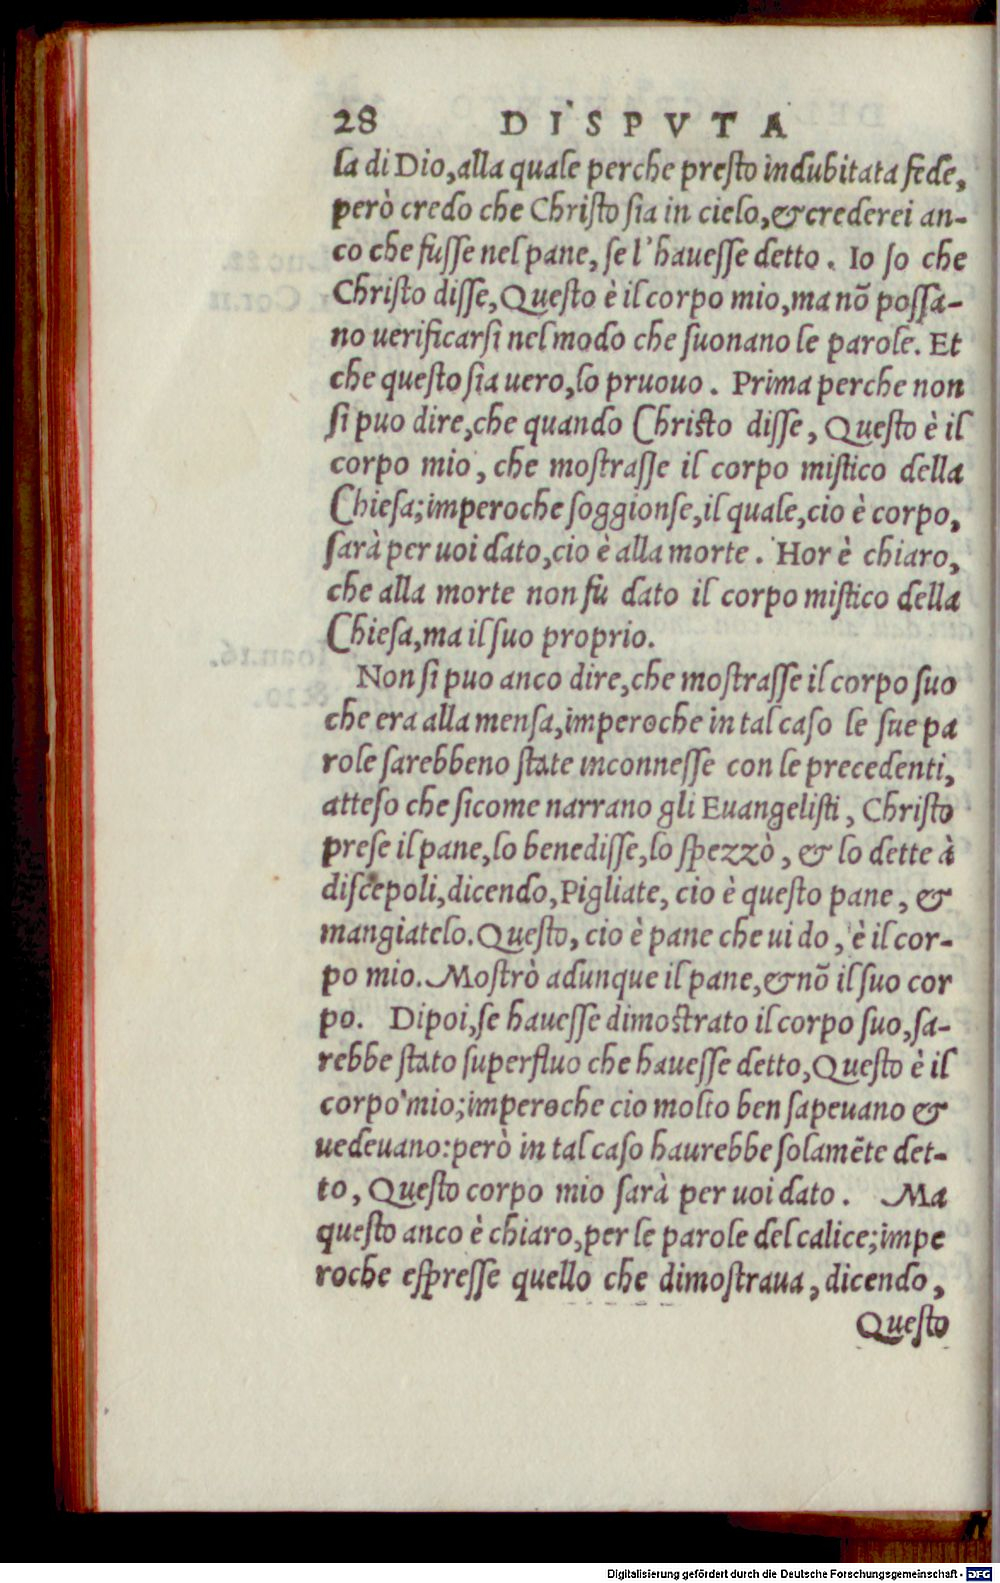 28 DISPVTA
la di Dio,alla quale perche presto indubitata fede,
però credo che Christo sia in cielo,& crederei an-
co che fusse nel pane, se l'hauesse detto. Io so che
Christo disse, Questo è il corpo mio, ma nõ possa-
no uerificarsi nel modo che suonano le parole. Et
che questo sia uero, lo pruouo. Prima perche non
si puo dire, che quando Christo disse, Questo è il
corpo mio, che mostrasse il corpo mistico della
Chiesa; imperoche soggionse, il quale, cio è corpo,
sarà per uoi dato, cio è alla morte. Hor è chiaro,
che alla morte non fu dato il corpo mistico della
Chiesa, ma il suo proprio.
Non si puo anco dire, che mostrasse il corpo suo
che era alla mensa, imperoche in tal caso le sue pa
role sarebbeno state inconnesse con le precedenti,
atteso che sicome narrano gli Euangelisti, Christo
prese il pane, lo benedisse, lo spezzò, & lo dette à
discepoli, dicendo, Pigliate, cio è questo pane, &
mangiatelo. Questo, cio è pane che ui do, è il cor-
po mio. Mostrò adunque il pane, & nõ il suo cor
po. Dipoi, se hauesse dimostrato il corpo suo, sa-
rebbe stato superfluo che hauesse detto, Questo è il
corpo mio; imperoche cio molto ben sapeuano &
uedeuano: però in tal caso haurebbe solamẽte det-
to, Questo corpo mio sarà per uoi dato. Ma
questo anco è chiaro, per le parole del calice; impe
roche espresse quello che dimostraua, dicendo,
Questo
Digitalisierung gefördert durch die Deutsche Forschungsgemeinschaft - DFG